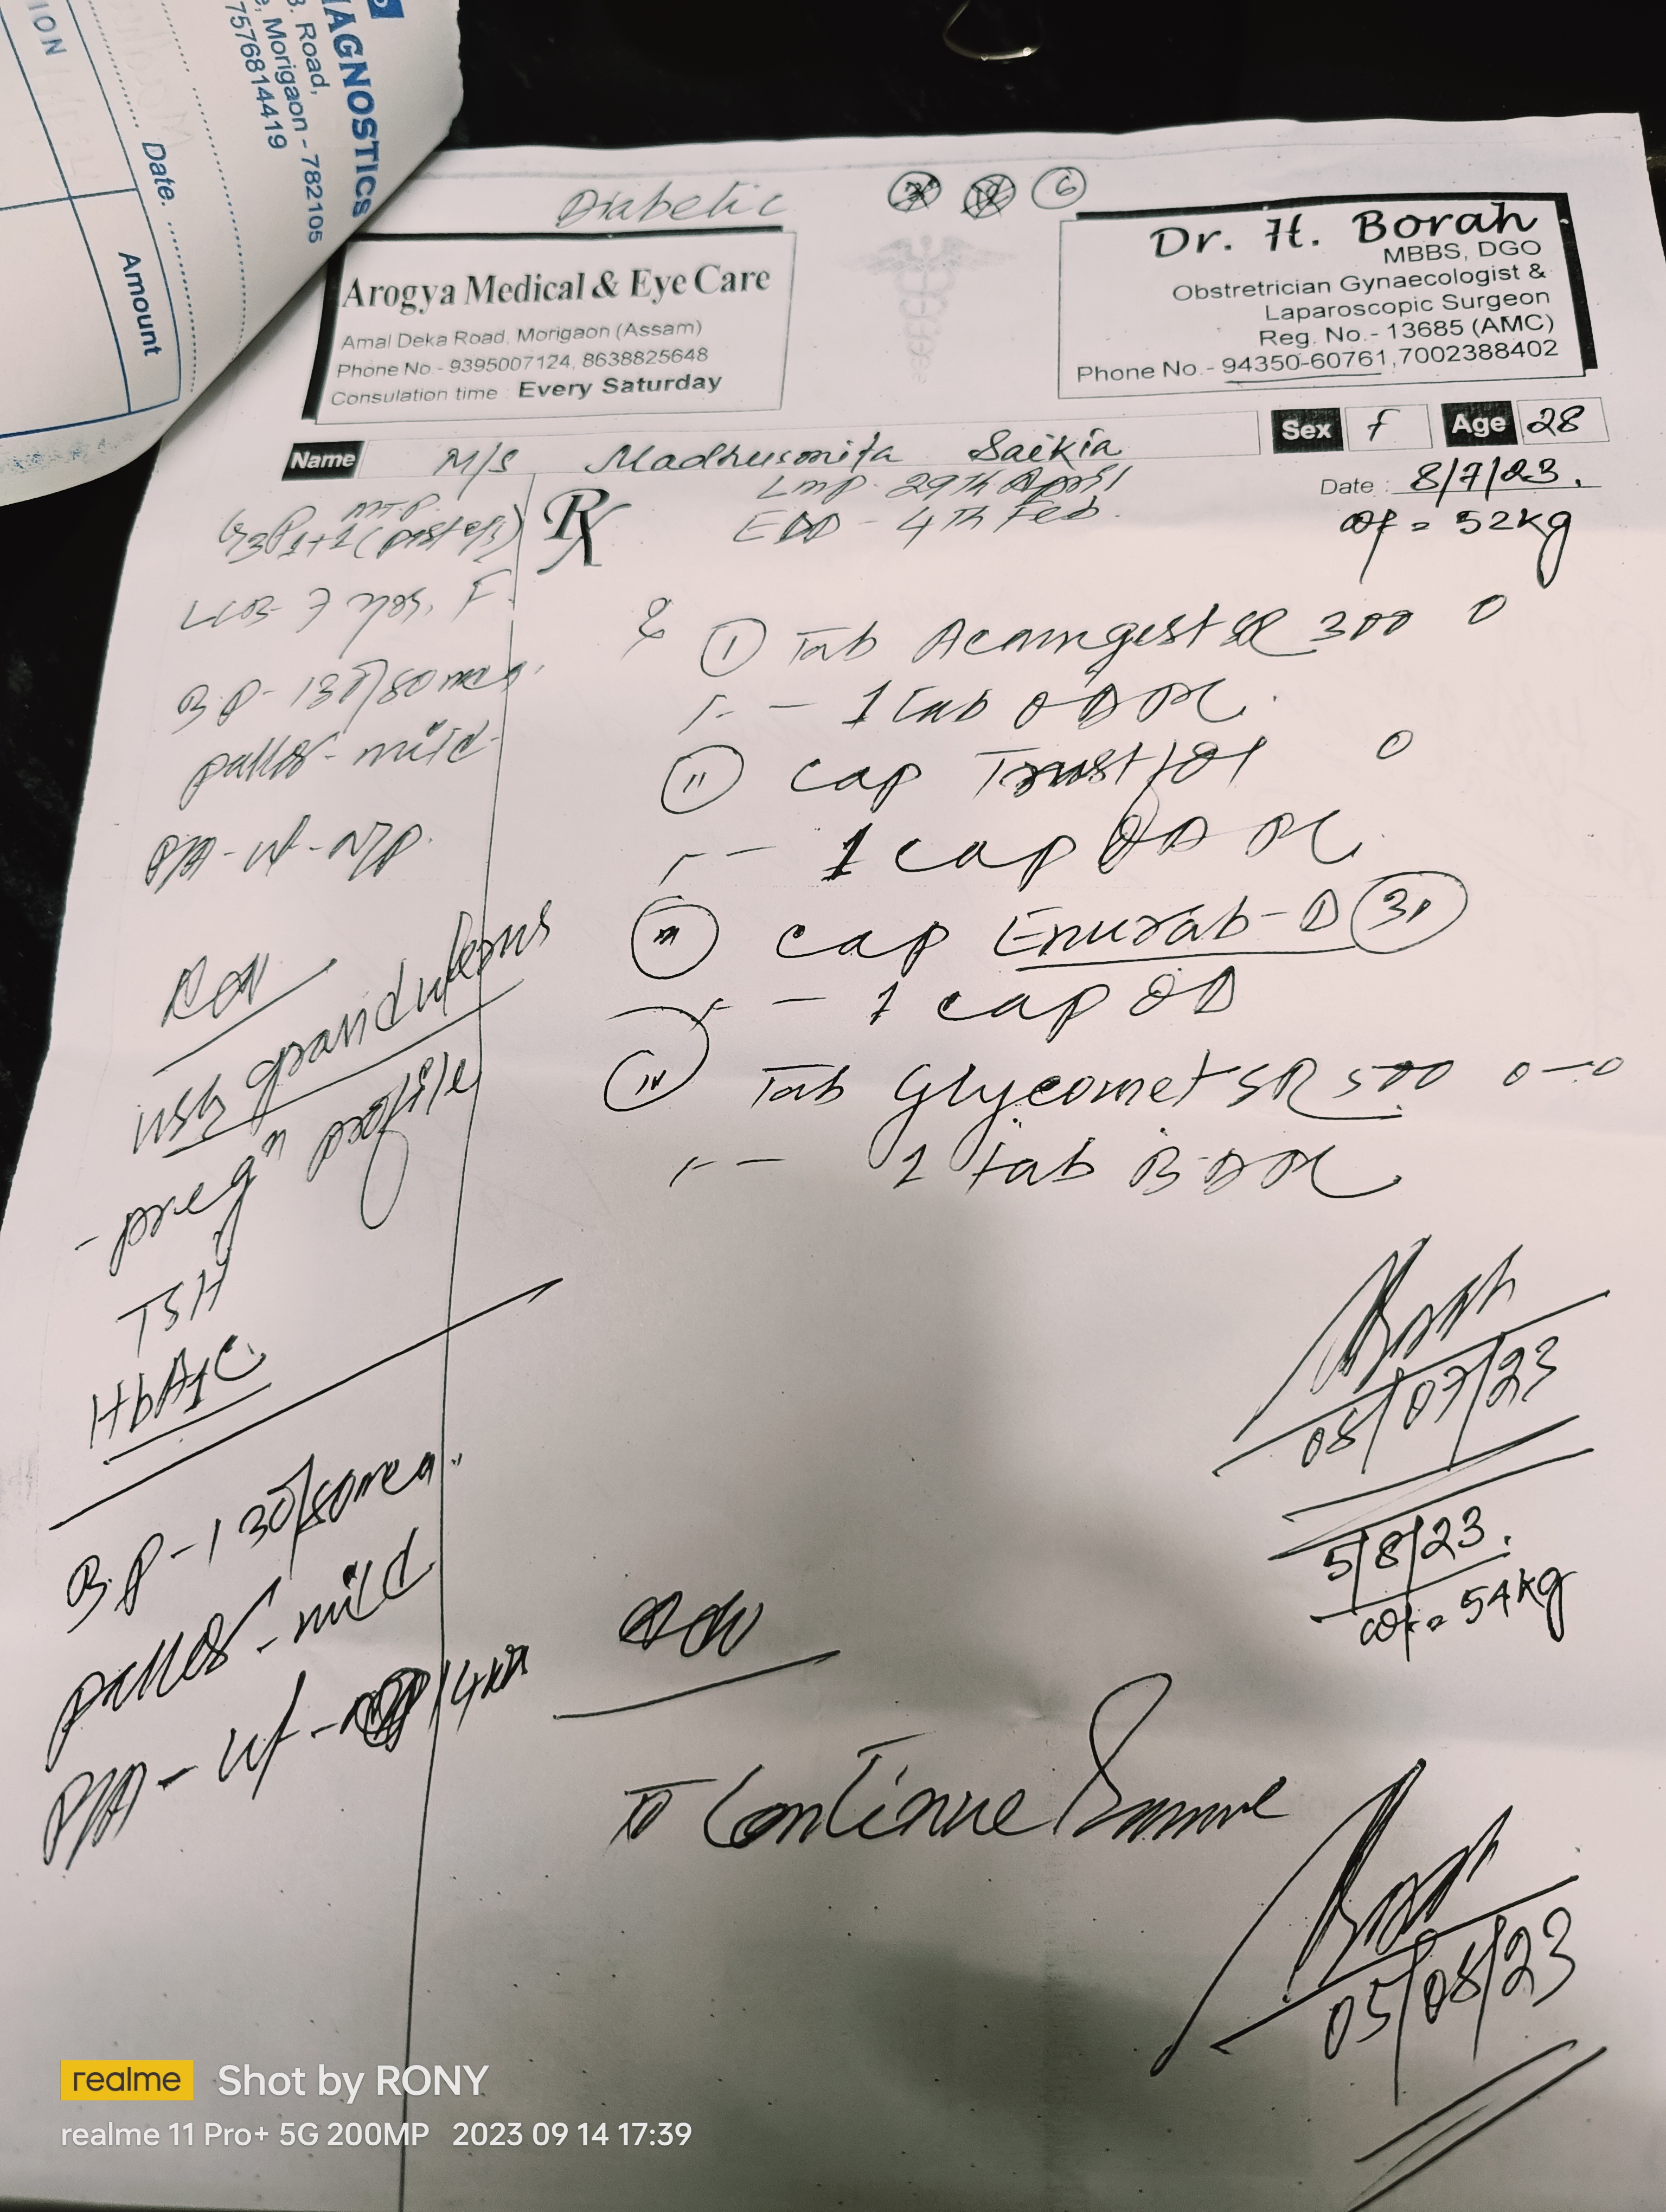 AGNOSTICS
Road,
Morigaon - 782105
7576814419
ION
Date.
Amount
Diabetic
6
Arogya Medical & Eye Care
Amal Deka Road, Morigaon (Assam)
Phone No - 9395007124, 8638825648
Consulation time : Every Saturday
Dr. H. Borah
MBBS, DGO
Obstretrician Gynaecologist &
Laparoscopic Surgeon
Reg. No.- 13685 (AMC)
Phone No.- 94350-60761,7002388402
Name M/S Madhusmita Saikia Sex F Age 28
Date : 8/7/23.
wt = 52kg
LMP - 29th April
EDD - 4th Feb.
Rx
LCB- 7 yrs, F
B.P- 130/80
pallor - mild
P/A - ut - N/P
Adv
USG gravid uterus
- pregn profile
TSH
HbA1C
I Tab SR 300
- - 1 tab OD
II cap
- - 1 cap OD
III cap - D
- - 1 cap OD
IV Tab Glycomet SR 500 0-0
- - 1 tab BD
08/07/23
5/8/23.
wt = 54kg
B.P - 130/80
pallor - mild
P/A - ut -
Adv
To Continue Same
05/08/23
realme Shot by RONY
realme 11 Pro+ 5G 200MP 2023 09 14 17:39